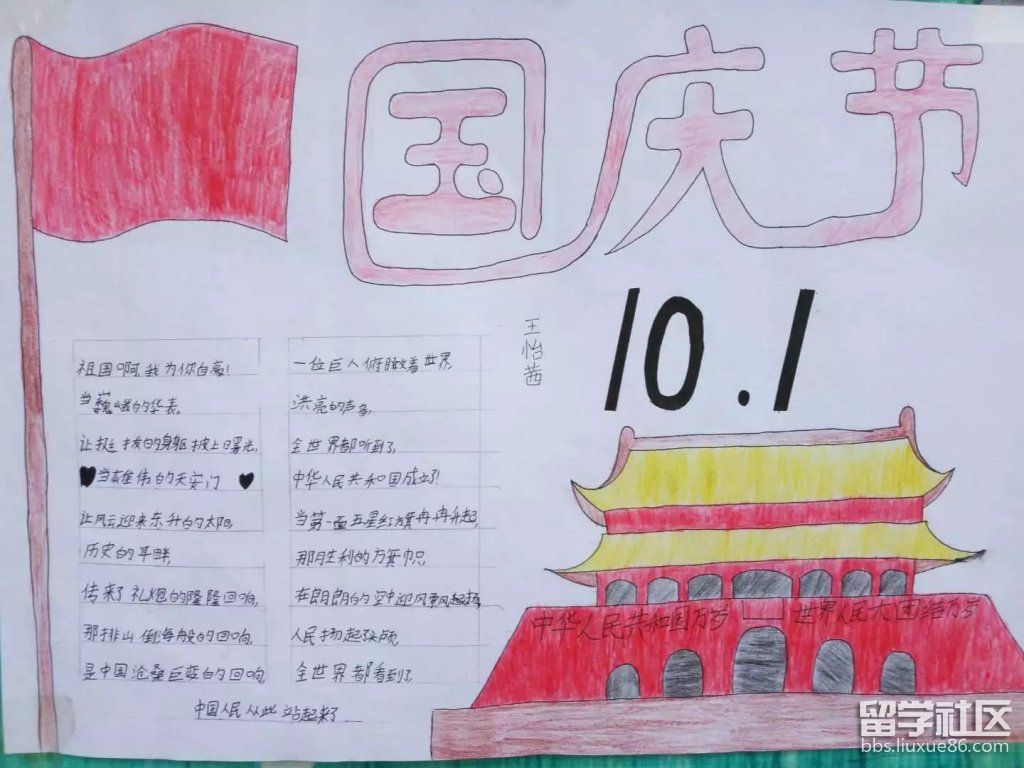 国庆节
10.1
王怡茜
祖国啊,我为你自豪!
当巍峨的华表,
让挺拔的身躯披上曙光,
当雄伟的天安门
让风云迎来东升的太阳,
历史的耳畔,
传来了礼炮的隆隆回响,
那排山倒海般的回响,
是中国沧桑巨变的回响,
一位巨人俯瞰着世界,
洪亮的声音,
全世界都听到了,
中华人民共和国成立了!
当第一面五星红旗冉冉升起,
那胜利的旗帜,
在朗朗的空中迎风飘扬,
人民扬起
全世界都看到了,
中国人民从此站起来了
中华人民共和国万岁
世界人民大团结万岁
留学社区
bbs.liuxue86.com